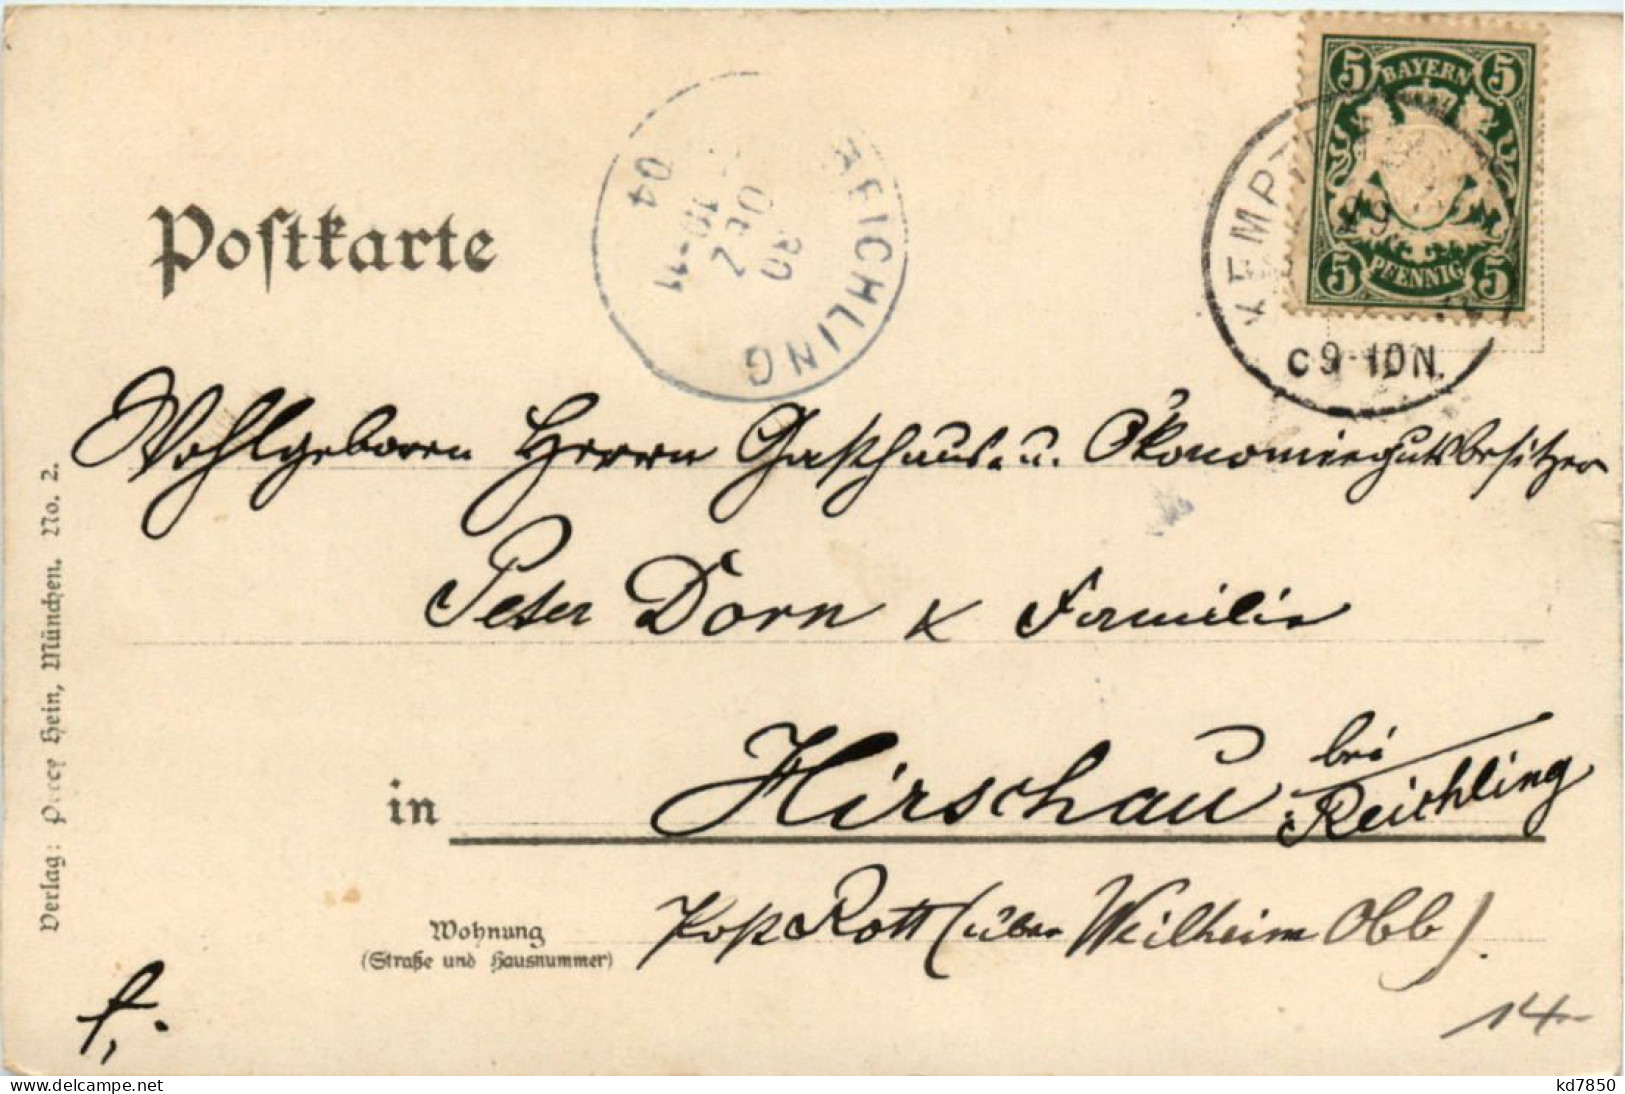 Postkarte
BAYERN
5 5
5 PFENNIG 5
KEMPTE
29
9-10N.
REICHLING
30
Dez
10-11
04
Wohlgeboren Herrn Gasthaus- u. Ökonomiegutsbesitzer
Peter Dorn & Familie
in Hirschau bei Reichling
Wohnung
(Straße und Hausnummer)
Post Rott (über Weilheim Obb).
f.
14.-
Verlag: Percy Hein, München. No. 2.
kd7850
www.delcampe.net